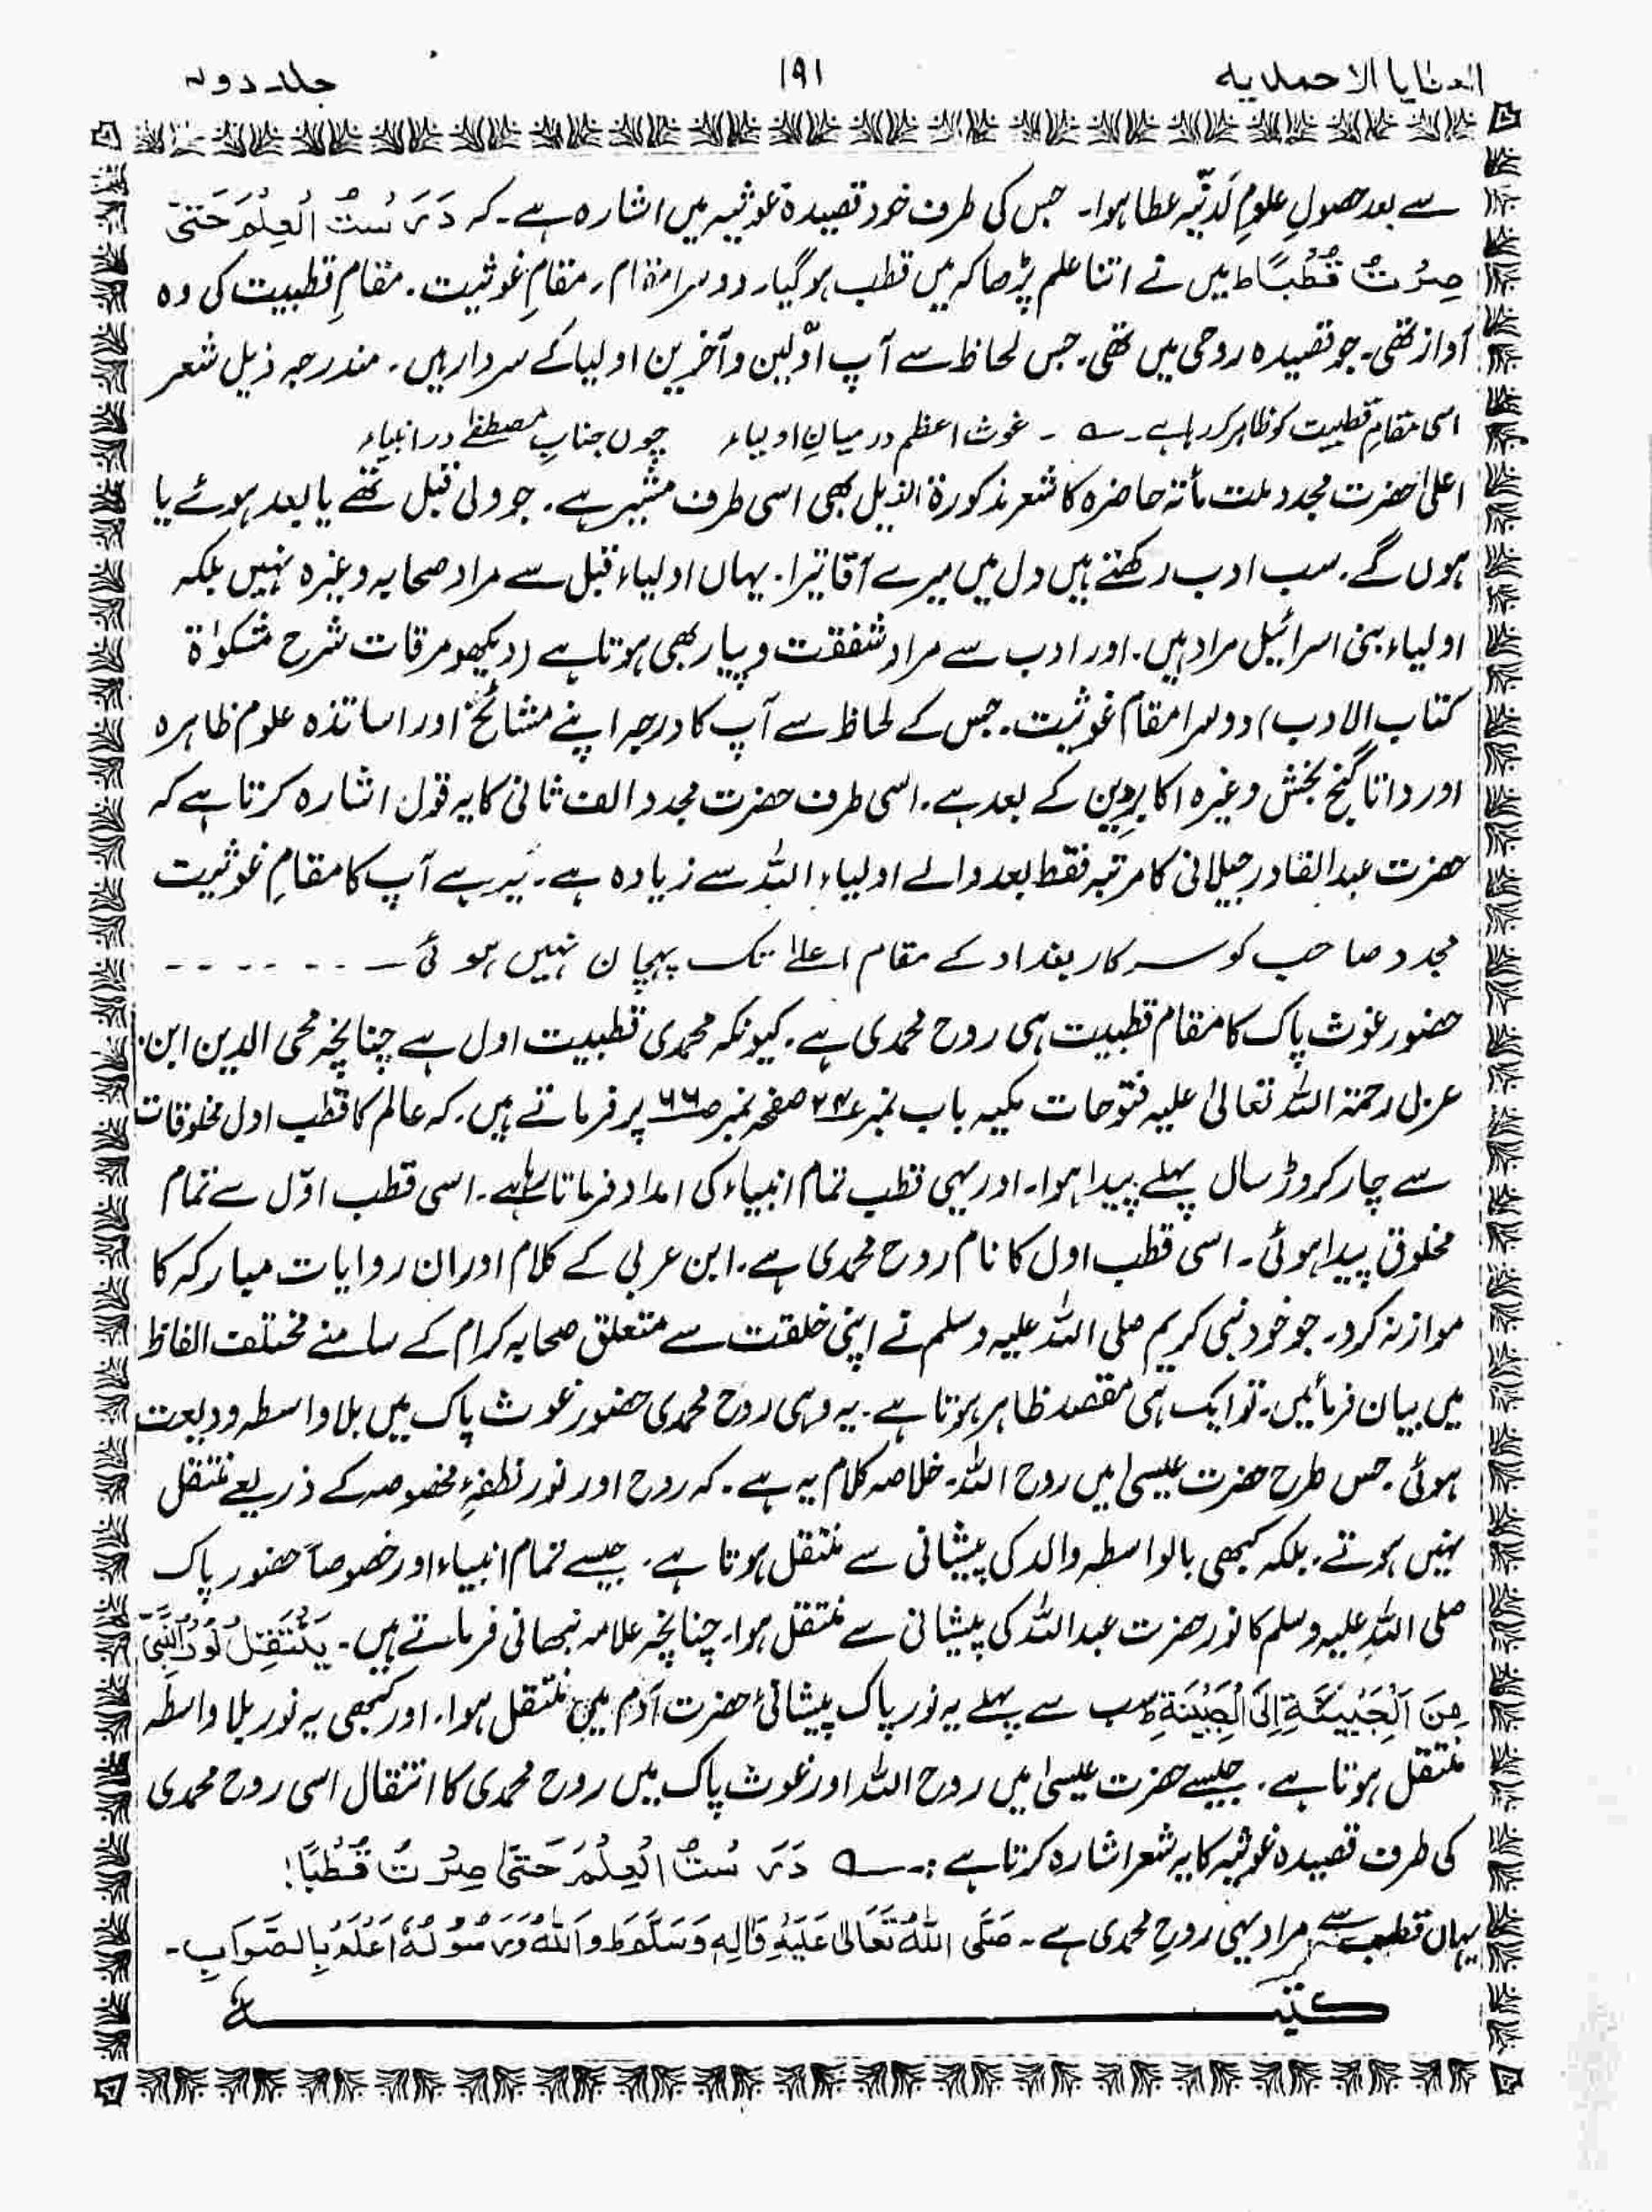 العطایا الاحمدیہ ۱۹۱ جلد دوم
سے بعد حصولِ علومِ لَدنیّہ عطا ہوا۔ جس کی طرف خود قصیدۃ غوثیہ میں اشارہ ہے۔ کہ دَرَسْتُ الْعِلْمَ حَتّیٰ
صِرْتُ قُطْبًا ط میں نے اتنا علم پڑھا کہ میں قطب ہو گیا۔ دوسرا مقام، مقامِ غوثیت۔ مقامِ قطبیت کی وہ
آواز تھی۔ جو قصیدہ روحی میں تھی۔ جس لحاظ سے آپ اوّلین و آخرین اولیا کے سردار ہیں۔ مندرجہ ذیل شعر
اسی مقامِ قطبیت کو ظاہر کر رہا ہے۔ ؎ ۔ غوث اعظم درمیانِ اولیاء چوں جنابِ مصطفےٰ در انبیاء
اعلیٰ حضرت مجدد ملت مأتہ حاضرہ کا شعر مذکورۃ الذیل بھی اسی طرف مشیر ہے۔ جو ولی قبل تھے یا بعد ہوئے یا
ہوں گے۔ سب ادب رکھتے ہیں دل میں میرے آقا تیرا۔ یہاں اولیاء قبل سے مراد صحابہ وغیرہ نہیں بلکہ
اولیاء بنی اسرائیل مراد ہیں۔ اور ادب سے مراد شفقت و پیار بھی ہوتا ہے (دیکھو مرقات شرح مشکوٰۃ
کتاب الادب) دوسرا مقام غوثیت۔ جس کے لحاظ سے آپ کا درجہ اپنے مشائخ اور اساتذہ علوم ظاہرہ
اور داتا گنج بخش وغیرہ اکابرِ دین کے بعد ہے۔ اسی طرف حضرت مجدد الف ثانی کا یہ قول اشارہ کرتا ہے کہ
حضرت عبد القادر جیلانی کا مرتبہ فقط بعد والے اولیاء اللہ سے زیادہ ہے۔ یہ ہے آپ کا مقامِ غوثیت
مجدد صاحب کو سرکار بغداد کے مقام اعلےٰ تک پہچان نہیں ہوئی ۔ - - - - - - -
حضور غوث پاک کا مقام قطبیت ہی روح محمدی ہے۔ کیونکہ محمدی قطبیت اول ہے چنانچہ محی الدین ابن
عربی رحمۃ اللہ تعالیٰ علیہ فتوحات مکیہ باب نمبر صفحہ نمبر ص۶۶ پر فرماتے ہیں۔ کہ عالم کا قطب اول مخلوقات
سے چار کروڑ سال پہلے پیدا ہوا۔ اور یہی قطب تمام انبیاء کی امداد فرماتا رہا ہے۔ اسی قطب اوّل سے تمام
مخلوق پیدا ہوئی۔ اسی قطب اول کا نام روح محمدی ہے۔ ابن عربی کے کلام اور ان روایات مبارکہ کا
موازنہ کرو۔ جو خود نبی کریم صلی اللہ علیہ وسلم نے اپنی خلقت سے متعلق صحابہ کرام کے سامنے مختلف الفاظ
میں بیان فرمائیں۔ تو ایک ہی مقصد ظاہر ہوتا ہے۔ یہ وہی روح محمدی حضور غوث پاک میں بلا واسطہ ودیعت
ہوئی۔ جس طرح حضرت عیسیٰ میں روح اللہ۔ خلاصہ کلام یہ ہے۔ کہ روح اور نور نطفۂ مخصوصہ کے ذریعے منتقل
نہیں ہوتے۔ بلکہ کبھی بالواسطہ والد کی پیشانی سے منتقل ہوتا ہے۔ جیسے تمام انبیاء اور خصوصاً حضور پاک
صلی اللہ علیہ وسلم کا نور حضرت عبد اللہ کی پیشانی سے منتقل ہوا۔ چنانچہ علامہ نبھانی فرماتے ہیں۔ یَنْتَقِلُ نُوْرُ النَّبِیِّ
مِنَ الْجَبِیْنَۃِ اِلَی الْجَبِیْنَۃِ ط سب سے پہلے یہ نور پاک پیشانیٔ حضرت آدم میں منتقل ہوا۔ اور کبھی یہ نور بلا واسطہ
منتقل ہوتا ہے۔ جیسے حضرت عیسیٰ میں روح اللہ اور غوث پاک میں روح محمدی کا انتقال اسی روح محمدی
کی طرف قصیدہ غوثیہ کا یہ شعر اشارہ کرتا ہے :۔ ؎ دَرَسْتُ الْعِلْمَ حَتّیٰ صِرْتُ قُطْبًا!
یہاں قطب سے مراد یہی روحِ محمدی ہے۔ صَلَّی اللہُ تَعَالیٰ عَلَیْہِ وَاٰلِہٖ وَسَلَّمَ ط وَاللہُ وَرَسُوْلُہٗ اَعْلَمُ بِالصَّوَابِ۔
کتبہ